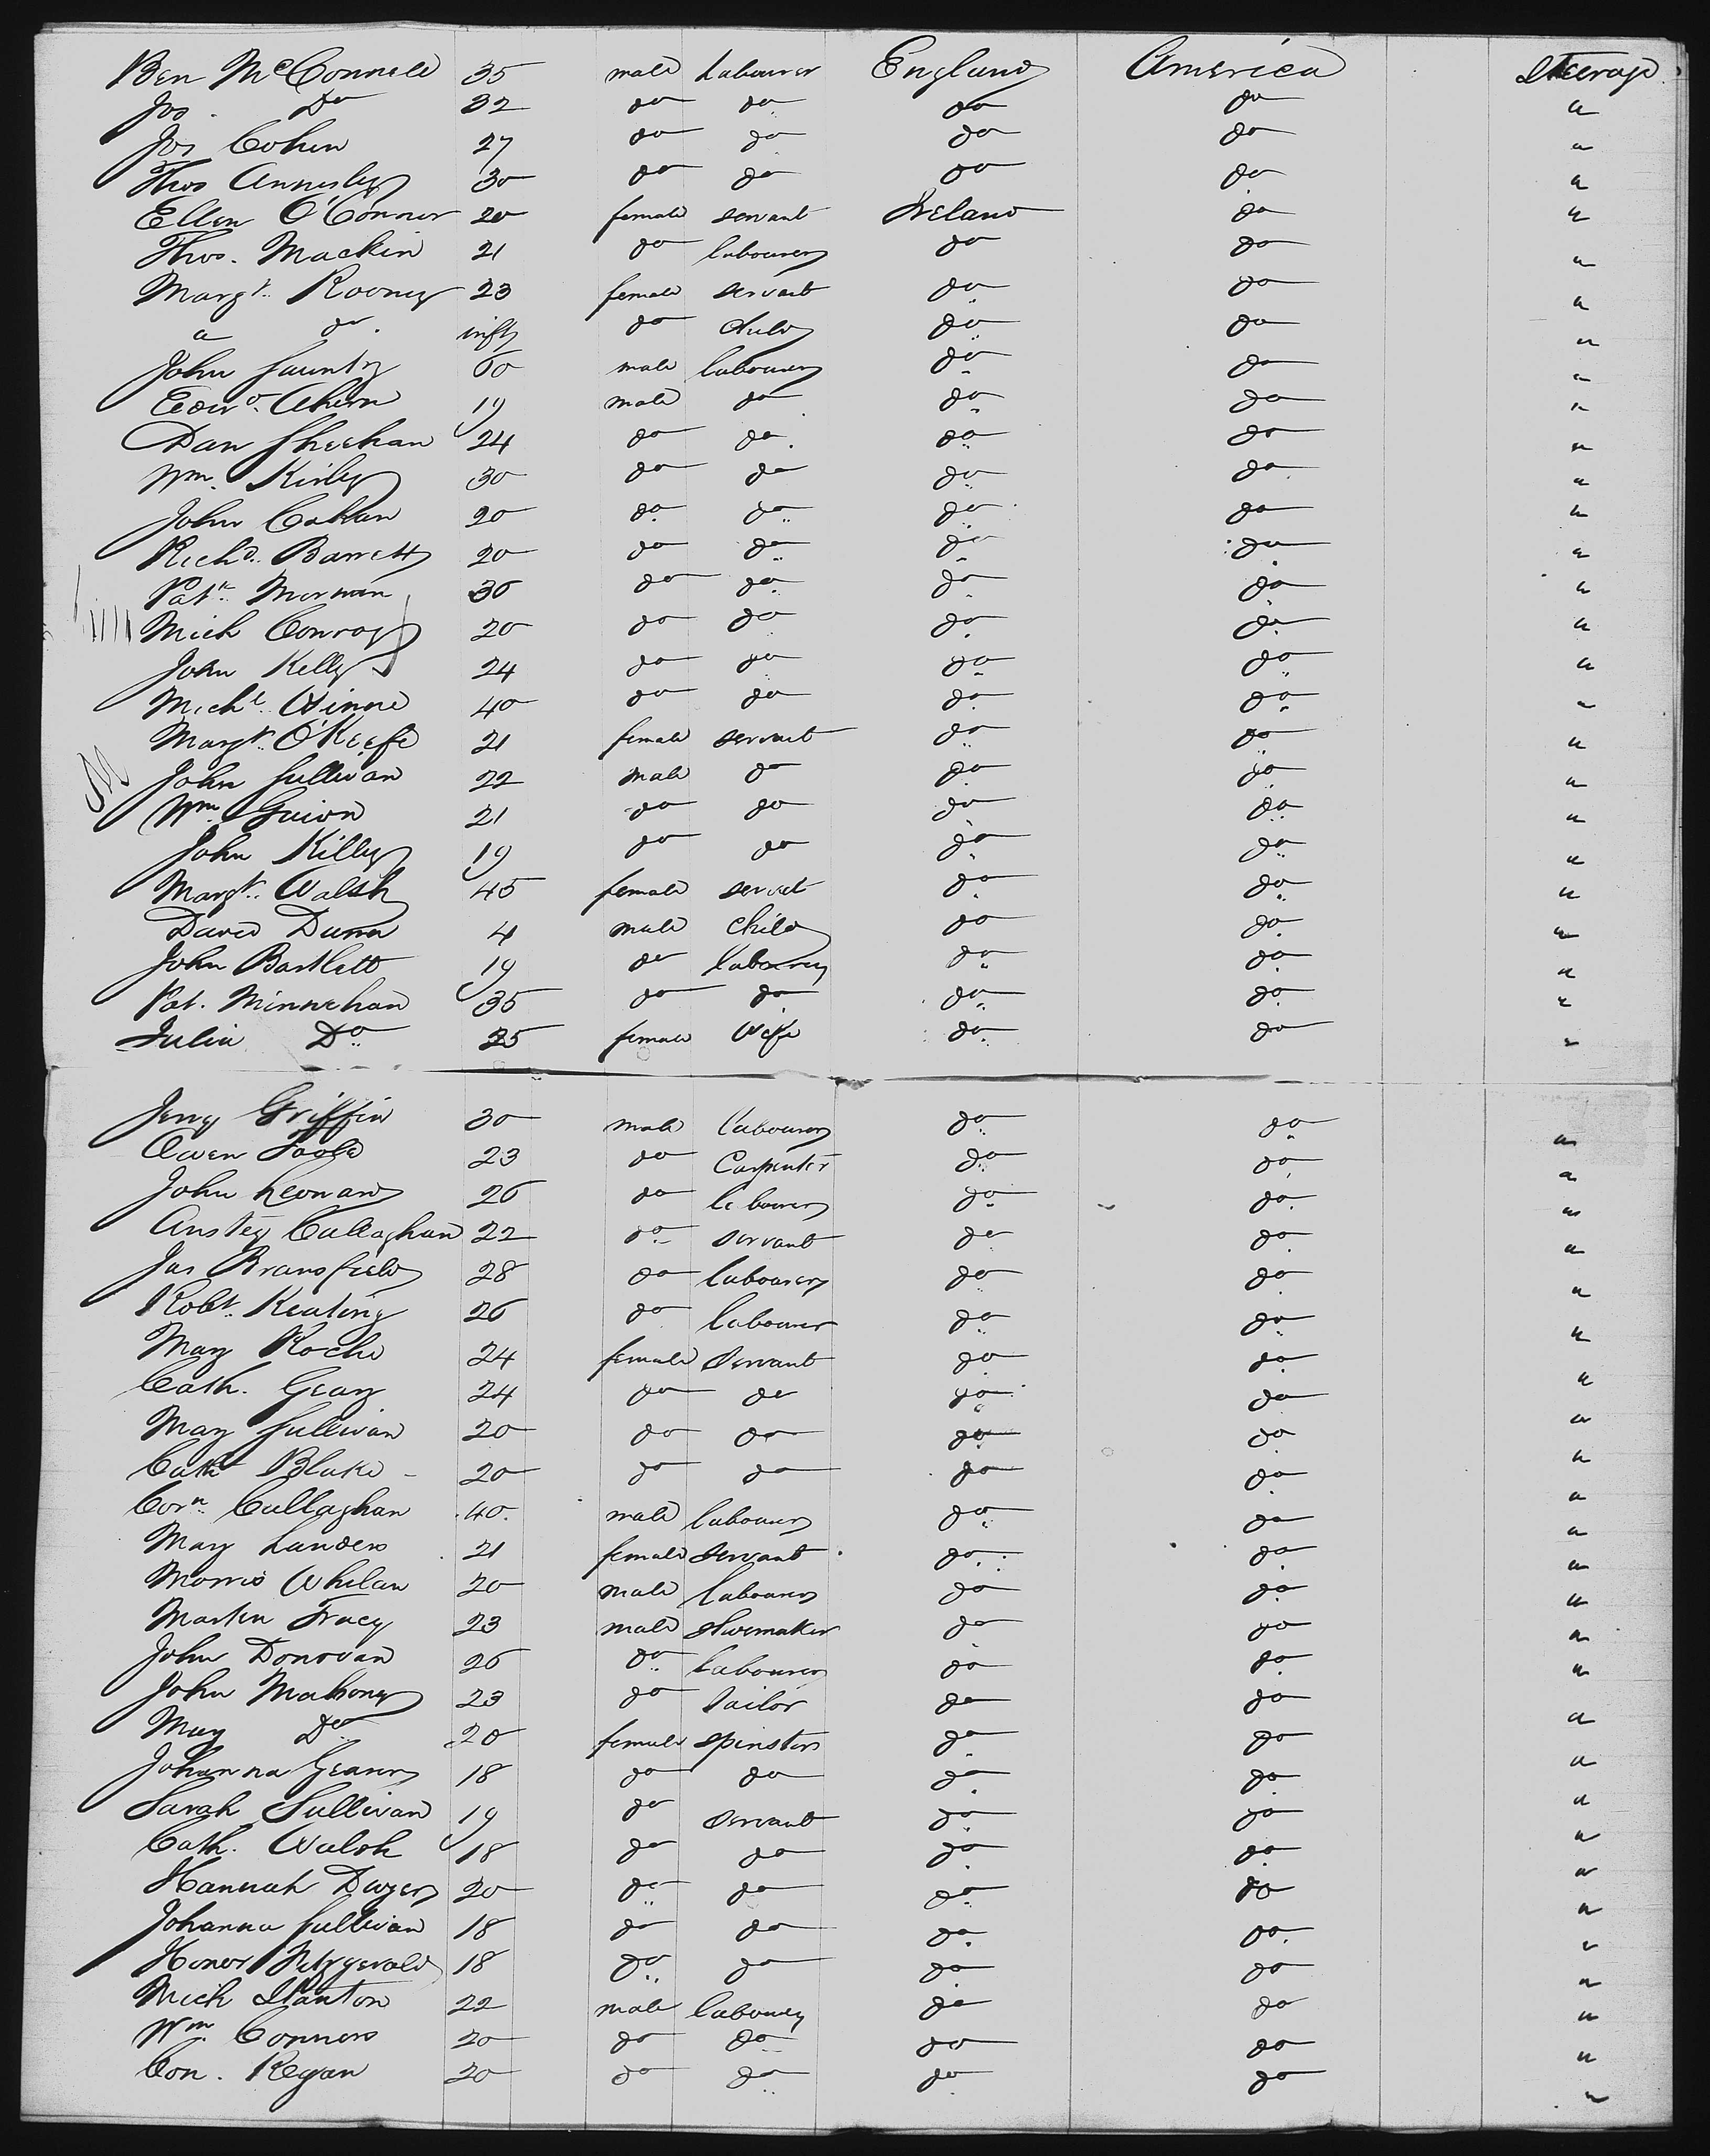 Ben McConnell 35 male Labourer England America Steerage
Jos Do 32 do do do do "
Jos Cohen 27 do do do do "
Thos Annesley 30 do do do do "
Ellen O'Connor 20 female servant Ireland do "
Thos. Mackin 21 do labourer do do "
Margt. Rooney 23 female servant do do "
" do. inft do child do do "
John 60 male labourer do do "
Edwd. Ahern 19 male do do do "
Dan Sheehan 24 do do do do "
Wm. Kirley 30 do do do do "
John 20 do do do do "
Richd. Barrett 20 do do do do "
Patk. 30 do do do do "
Mich Conroy 20 do do do do "
John Kelly 24 do do do do "
Michl. 40 do do do do "
Margt. O'Keefe 21 female servant do do "
John Sullivan 22 male do do do "
Wm. 21 do do do do "
John Killey 19 do do do do "
Margt. Walsh 45 female servant do do "
David Dunn 4 male child do do "
John Bartlett 19 do labourer do do "
Pat. Minnehan 35 do do do do "
Julia Do 35 female Wife do do "
Jerry Griffin 30 male labourer do do "
Owen Toole 23 do Carpenter do do "
John Leonard 26 do labourer do do "
Anstey Callaghan 22 do servant do do "
Jas Bransfield 28 do labourer do do "
Robt. Keating 26 do labourer do do "
Mary Roche 24 female servant do do "
Cath. Geary 24 do do do do "
Mary Sullivan 20 do do do do "
Cath Blake 20 do do do do "
Corn. Callaghan 40. male labourer do do "
Mary Landers 21 female servant do do "
Morris Whelan 20 male labourer do do "
Martin Tracy 23 male shoemaker do do "
John Donovan 26 do labourer do do "
John Mahony 23 do Tailor do do "
Mary Do 20 female spinster do do "
Johanna Geary 18 do do do do "
Sarah Sullivan 19 do servant do do "
Cath. Walsh 18 do do do do "
Hannah Dwyer 20 do do do do "
Johanna Sullivan 18 do do do do "
Honor Fitzgerald 18 do do do do "
Mich Stanton 22 male labourer do do "
Wm. Connors 20 do do do do "
Con. Regan 20 do do do do "